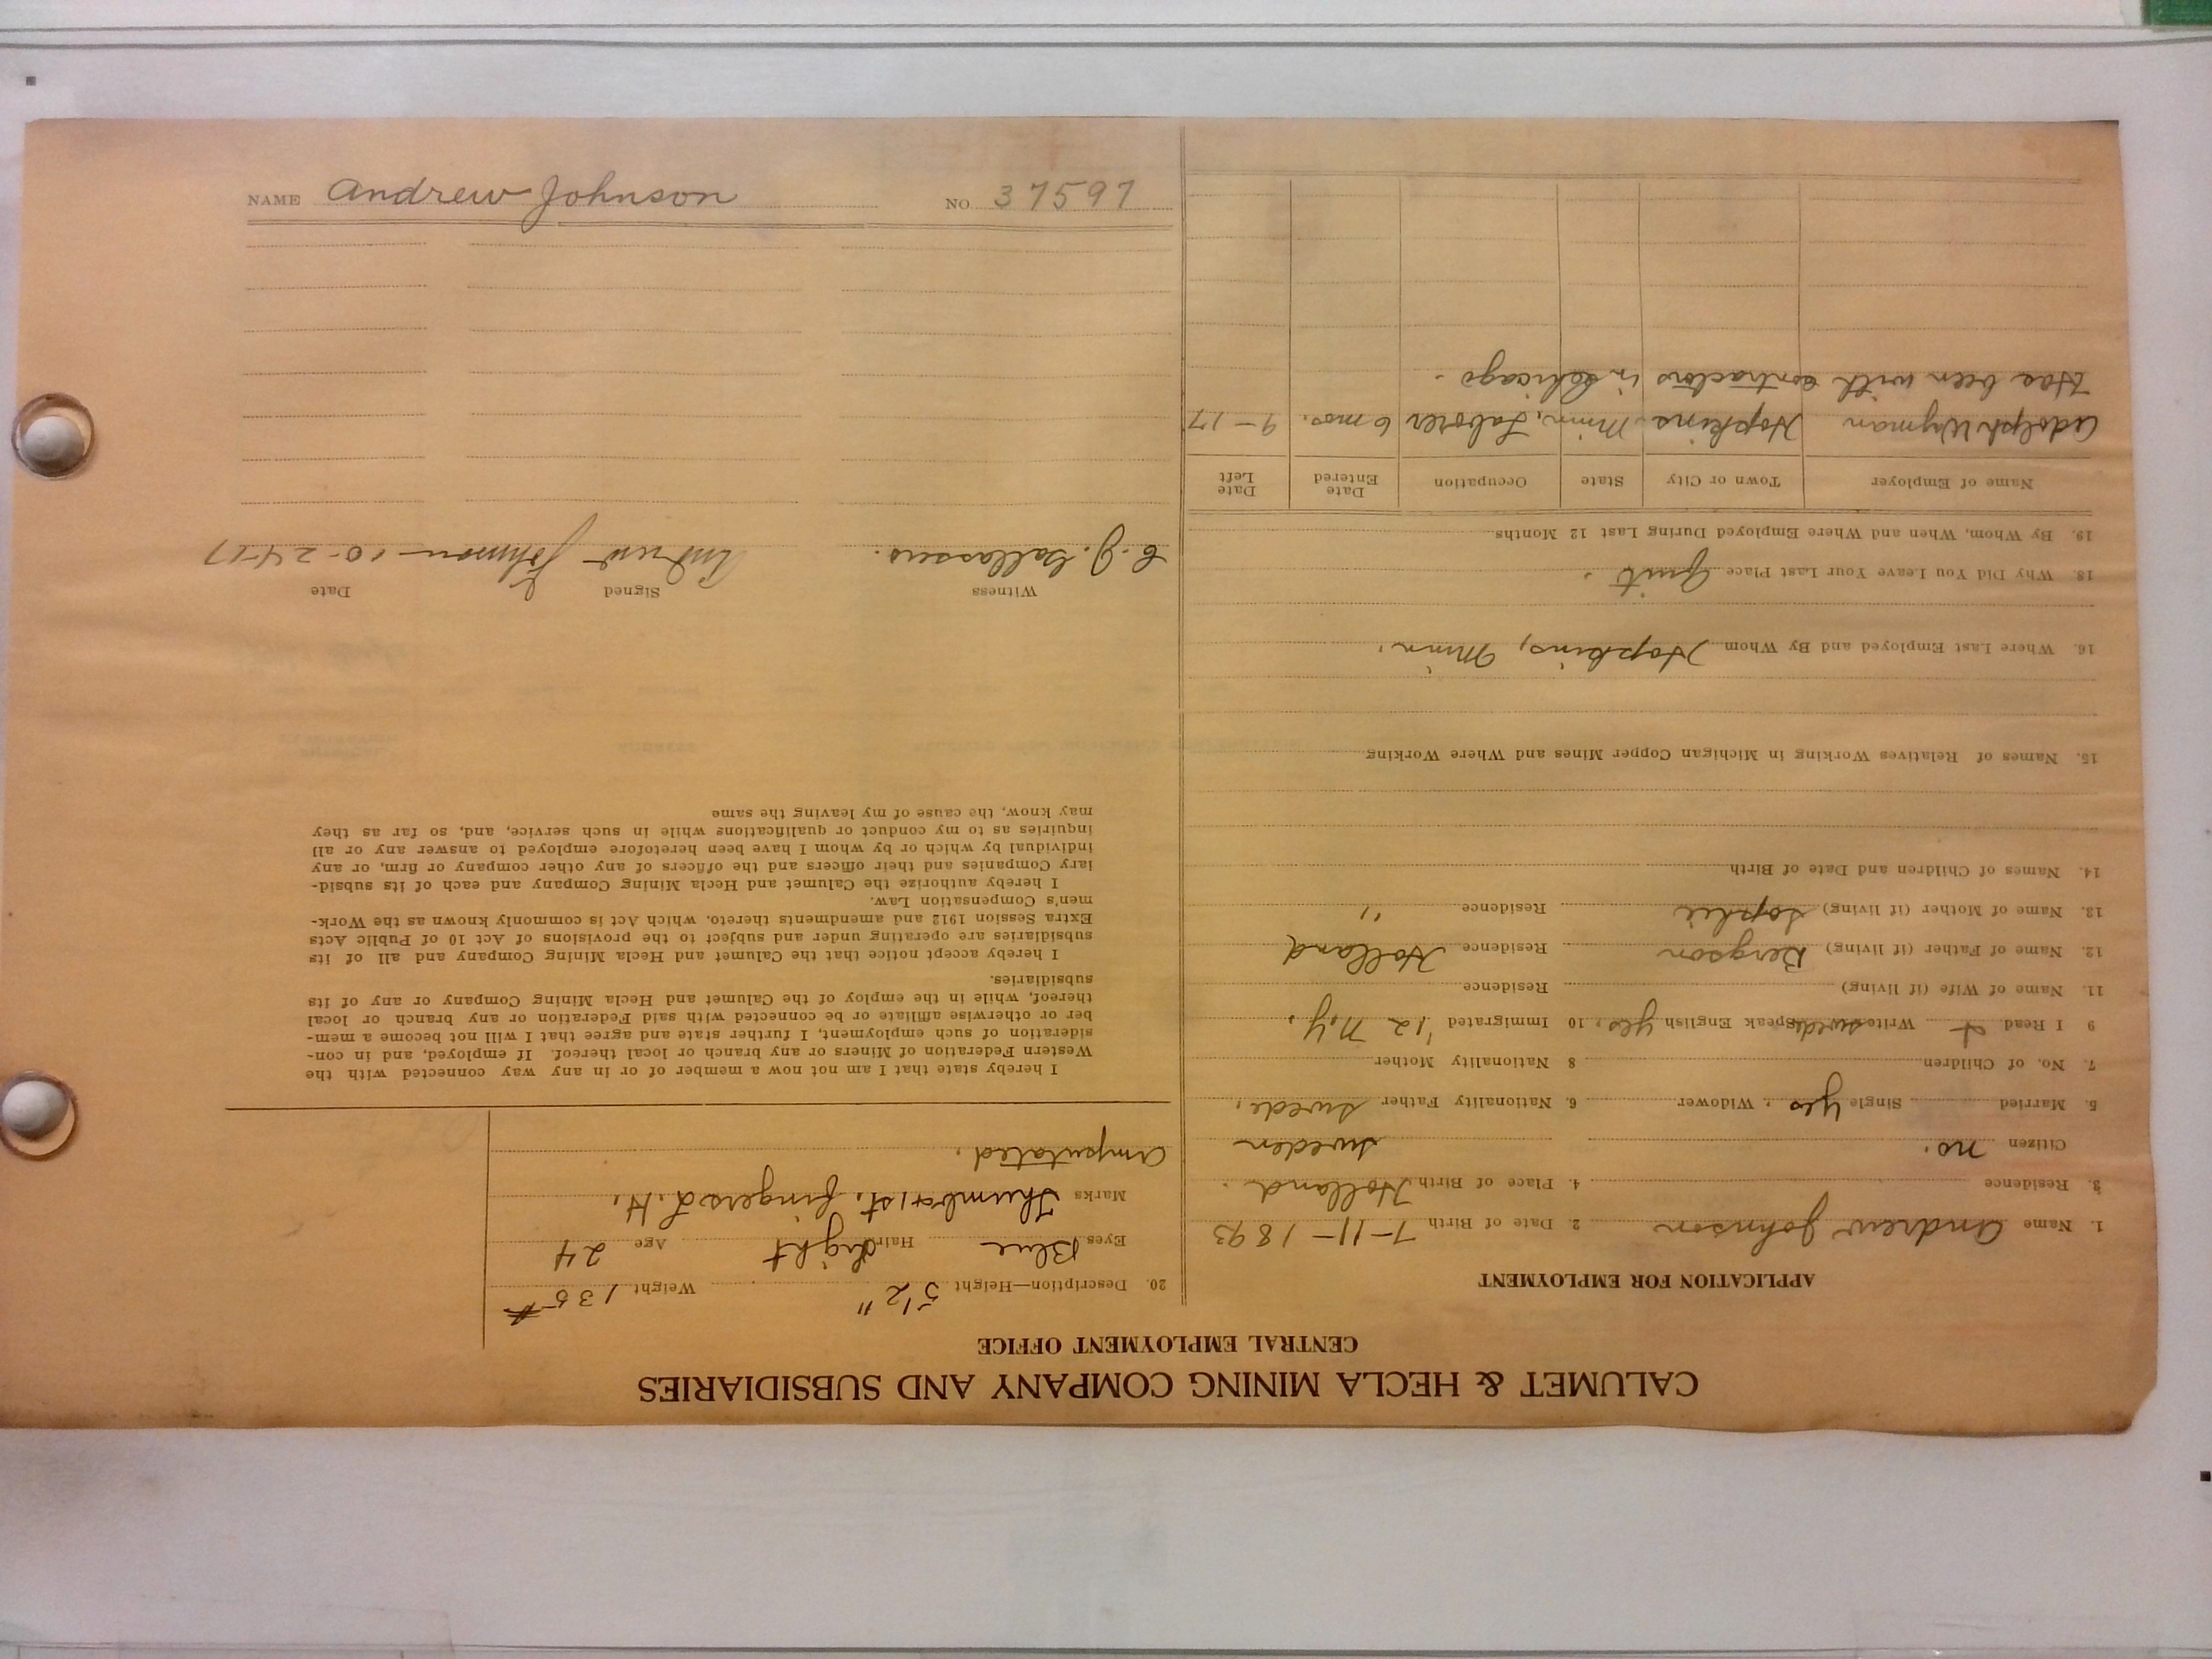 NAME Andrew Johnson NO 37597
CALUMET & HECLA MINING COMPANY AND SUBSIDIARIES
CENTRAL EMPLOYMENT OFFICE
APPLICATION FOR EMPLOYMENT
1. Name Andrew Johnson 2. Date of Birth 7-11-1893
3. Residence 4. Place of Birth Holland.
Citizen no. Sweden
5. Married Single yes, Widower 6. Nationality Father Swede,
7. No. of Children 8 Nationality Mother
9 I Read & Write Swede Speak English yes, 10 Immigrated '12 N.Y.
11. Name of Wife (if living) Residence
12. Name of Father (if living) Bergson Residence Holland
13. Name of Mother (if living) Sophie Residence "
14. Names of Children and Date of Birth
15. Names of Relatives Working in Michigan Copper Mines and Where Working
16. Where Last Employed and By Whom Hopkins, Minn.
18. Why Did You Leave Your Last Place Quit.
19. By Whom, When and Where Employed During Last 12 Months
Name of Employer Town or City State Occupation Date Entered Date Left
Adolph Wyman Hopkins Minn, Laborer 6 mos. 9-17
Has been with contractors in Chicago.
20. Description—Height 5'2" Weight 135#
Eyes Blue Hair Light Age 24
Marks Thumb & 1st. fingers L.H.
amputated.
I hereby state that I am not now a member of or in any way connected with the
Western Federation of Miners or any branch or local thereof. If employed, and in con-
sideration of such employment, I further state and agree that I will not become a mem-
ber or otherwise affiliate or be connected with said Federation or any branch or local
thereof, while in the employ of the Calumet and Hecla Mining Company or any of its
subsidiaries.
I hereby accept notice that the Calumet and Hecla Mining Company and all of its
subsidiaries are operating under and subject to the provisions of Act 10 of Public Acts
Extra Session 1912 and amendments thereto, which Act is commonly known as the Work-
men's Compensation Law.
I hereby authorize the Calumet and Hecla Mining Company and each of its subsid-
iary Companies and their officers and the officers of any other company or firm, or any
individual by which or by whom I have been heretofore employed to answer any or all
inquiries as to my conduct or qualifications while in such service, and, so far as they
may know, the cause of my leaving the same
Witness Signed Date
Andrew Johnson 10-24-17